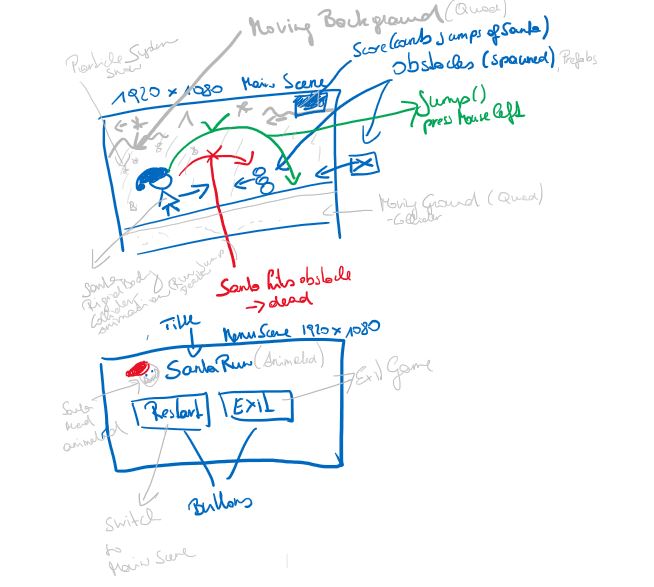 Moving Background (Quad)
Particle System
Snow
Score (counts jumps of Santa)
obstacles (spawned), Prefabs
1920 x 1080 Main Scene
Jump()
press Mouse left
Moving Ground (Quad)
- Collider
Santa
Rigidbody
Collider
Santa hits obstacle
→ dead
Title
MenuScene 1920 x 1080
SantaRun (Animated)
Exit Game
Santa
Head
animated
Restart
EXIT
Buttons
Switch
to
Main Scene